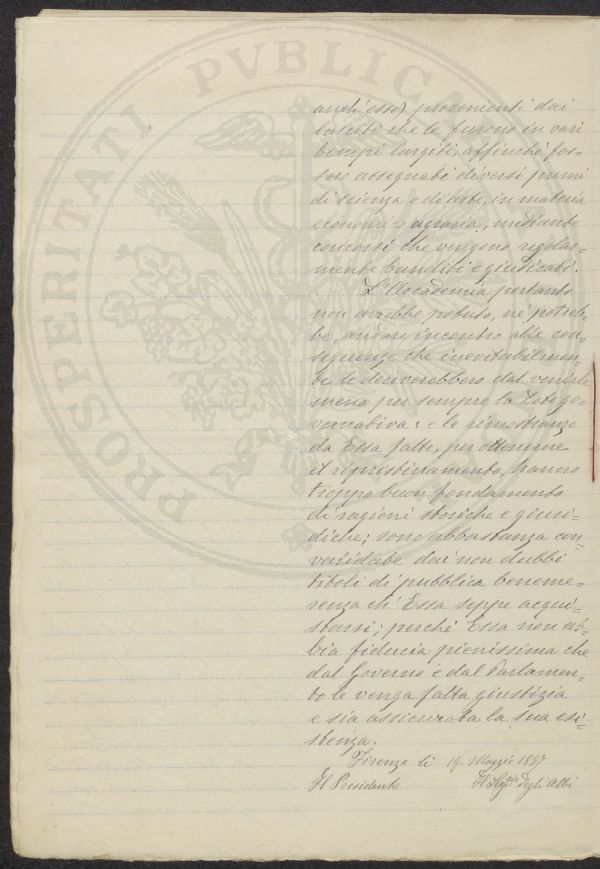 PROSPERITATI PVBLICA
anch'esse) provenienti dai
lasciti che le furono in vari
tempi largiti, affinchè fos=
sero assegnati diversi premi
di scienza, o di arte, in materia
economico agraria, mediante
concorsi che vengono regolar=
mente banditi e giudicati.
L'Accademia pertanto
non avrebbe potuto, nè potreb=
be, andare incontro alle con=
seguenze che inevitabilmen=
te le deriverebbero dal venirle
meno per sempre la Dote go=
vernativa: e le rimostranze
da Essa fatte, per ottenerne
il ripristinamento, hanno
troppo buon fondamento
di ragioni storiche e giuri=
diche; sono abbastanza con
validate dai non dubbi
titoli di pubblica beneme=
renza ch'Essa seppe acqui=
starsi; perchè Essa non ab=
bia fiducia pienissima che
dal Governo e dal Parlamen=
to le venga fatta giustizia
e sia assicurata la sua esi=
stenza.
Firenze li 19. Maggio 1897
Il Presidente Il Segrio degli Atti